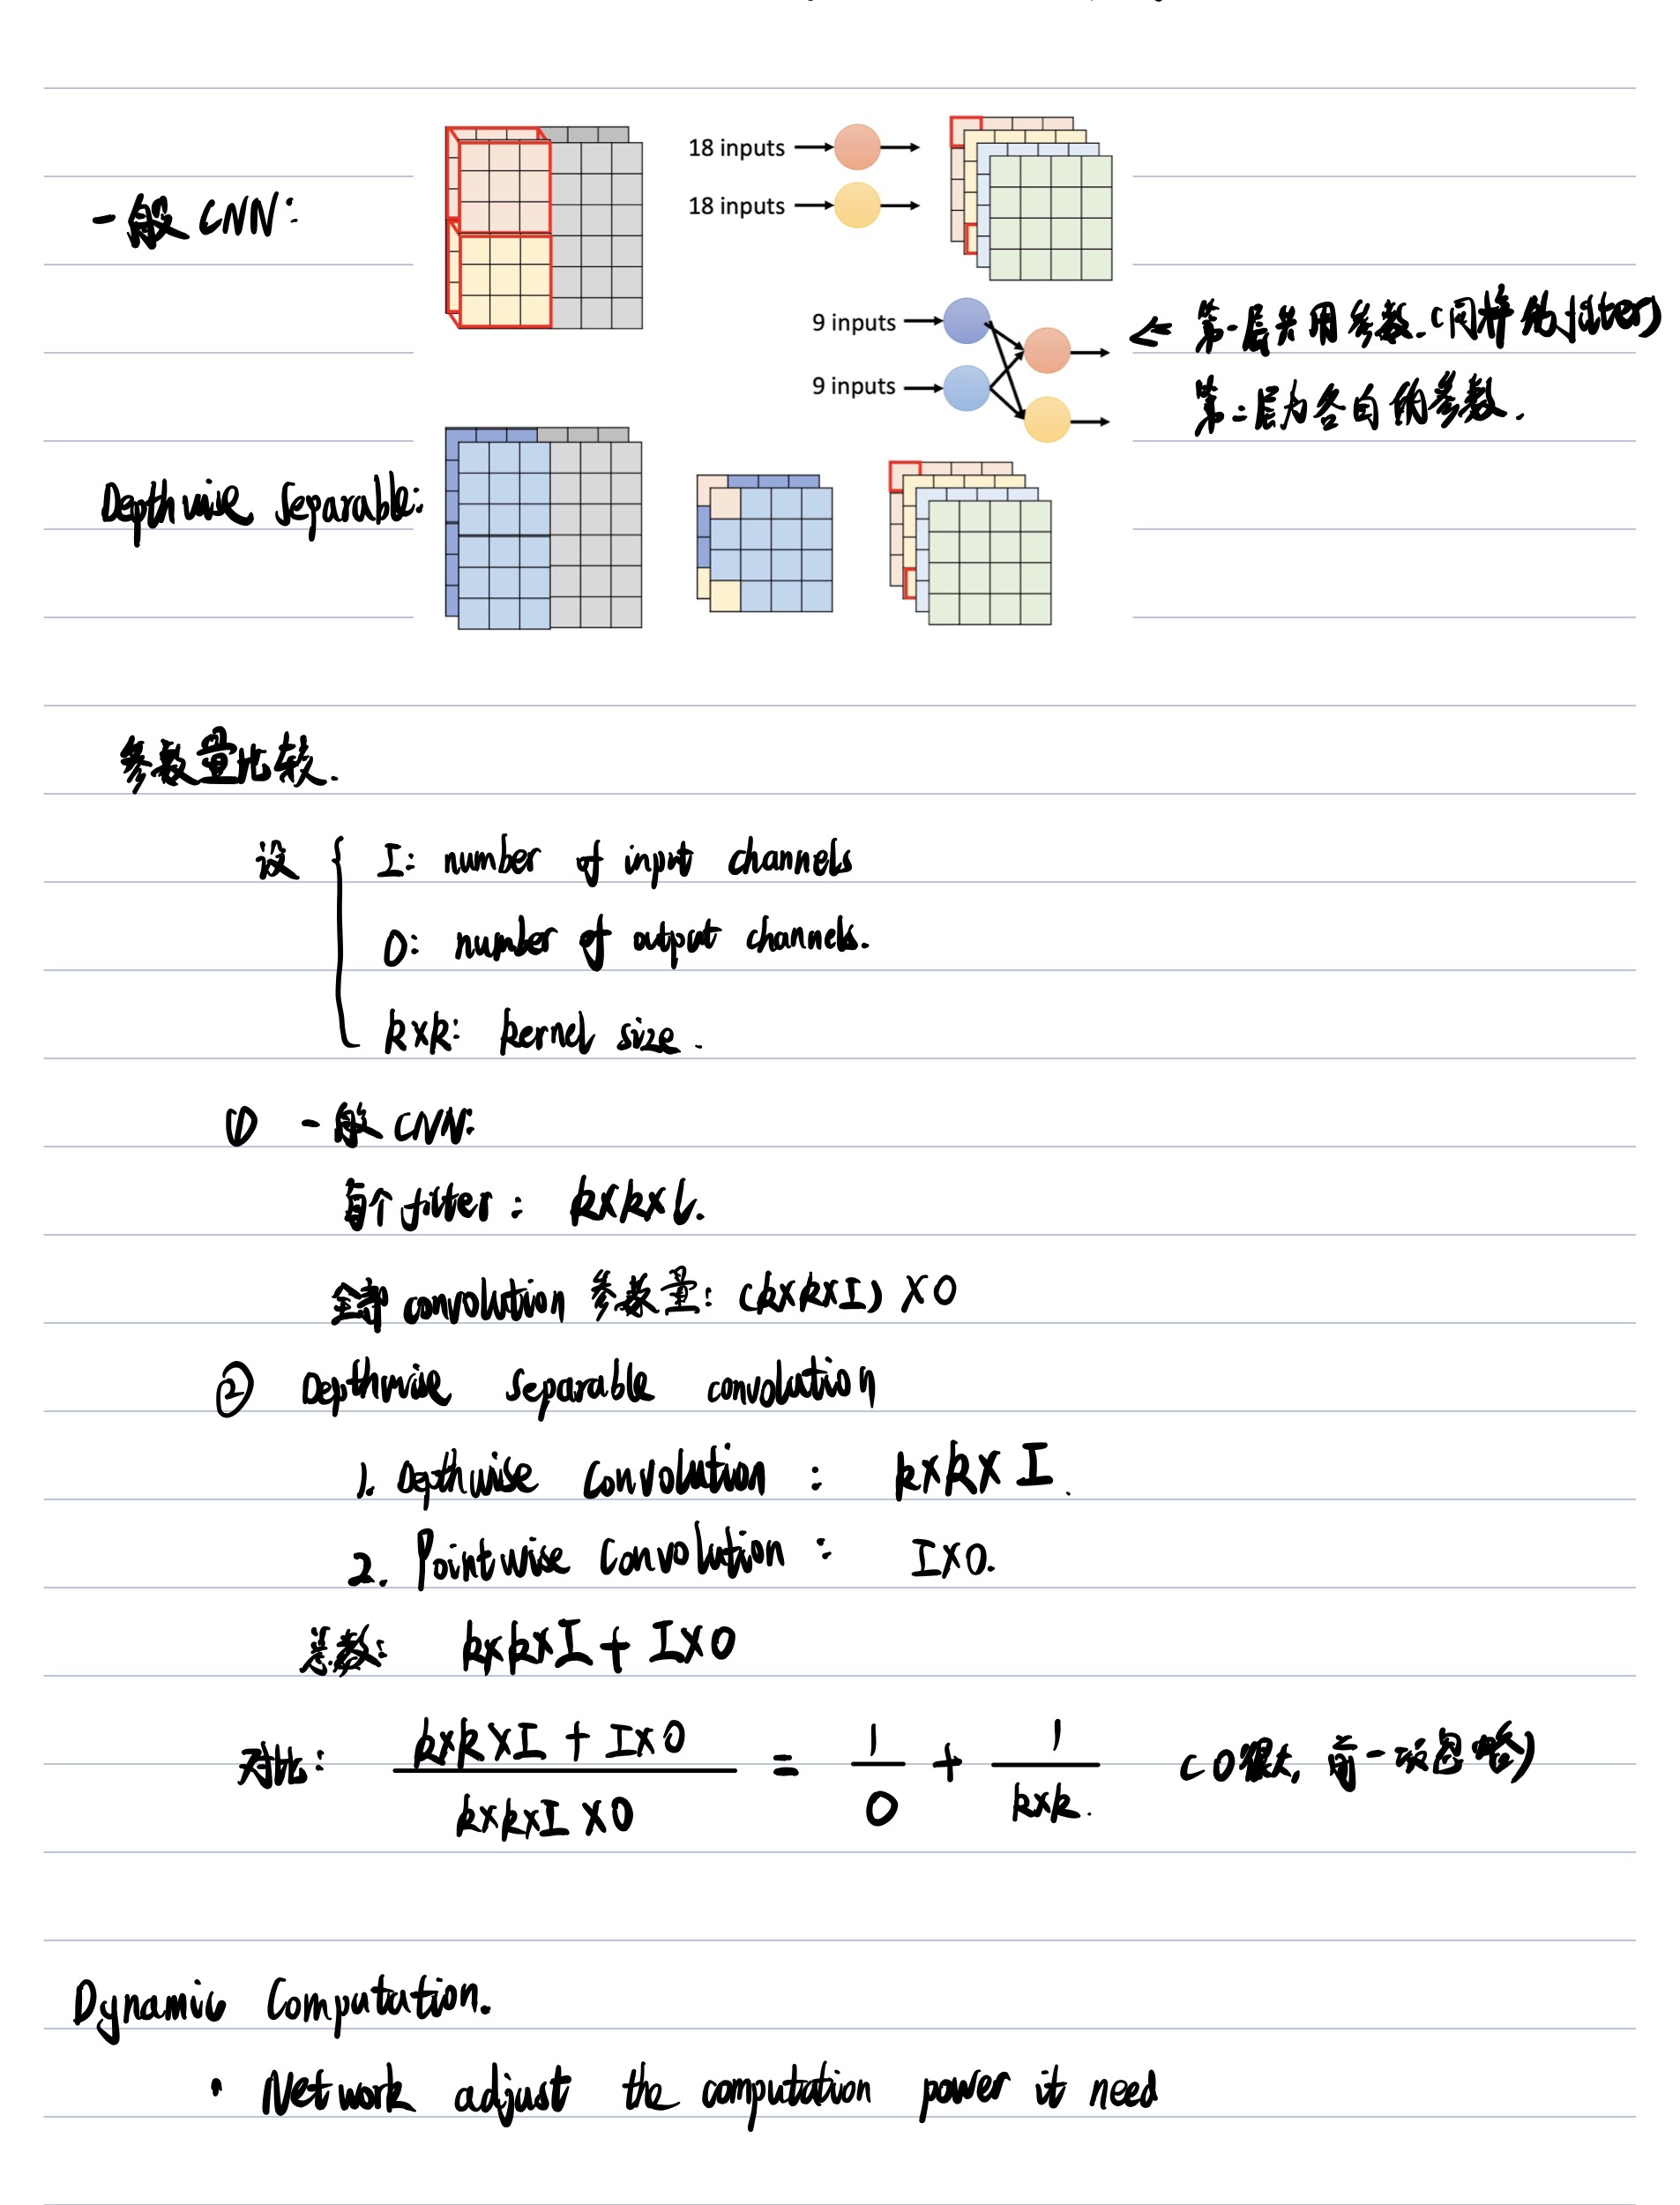 18 inputs
18 inputs
一般 CNN:
9 inputs
← 第一层共用参数.(同样的filter)
9 inputs
第二层为各自的参数.
Depthwise Separable:
参数量比较.
设 { I: number of input channels
O: number of output channels.
k×k: kernel size.
① 一般 CNN:
每个 filter: k×k×I.
全部 convolution 参数量: (k×k×I) × O
② Depthwise separable convolution
1. Depthwise Convolution: k×k×I.
2. Pointwise Convolution: I×O.
总数: k×k×I + I×O
对比: (k×k×I + I×O) / (k×k×I×O) = 1/O + 1/(k×k). (O很大, 前一项忽略)
Dynamic Computation.
• Network adjust the computation power it need